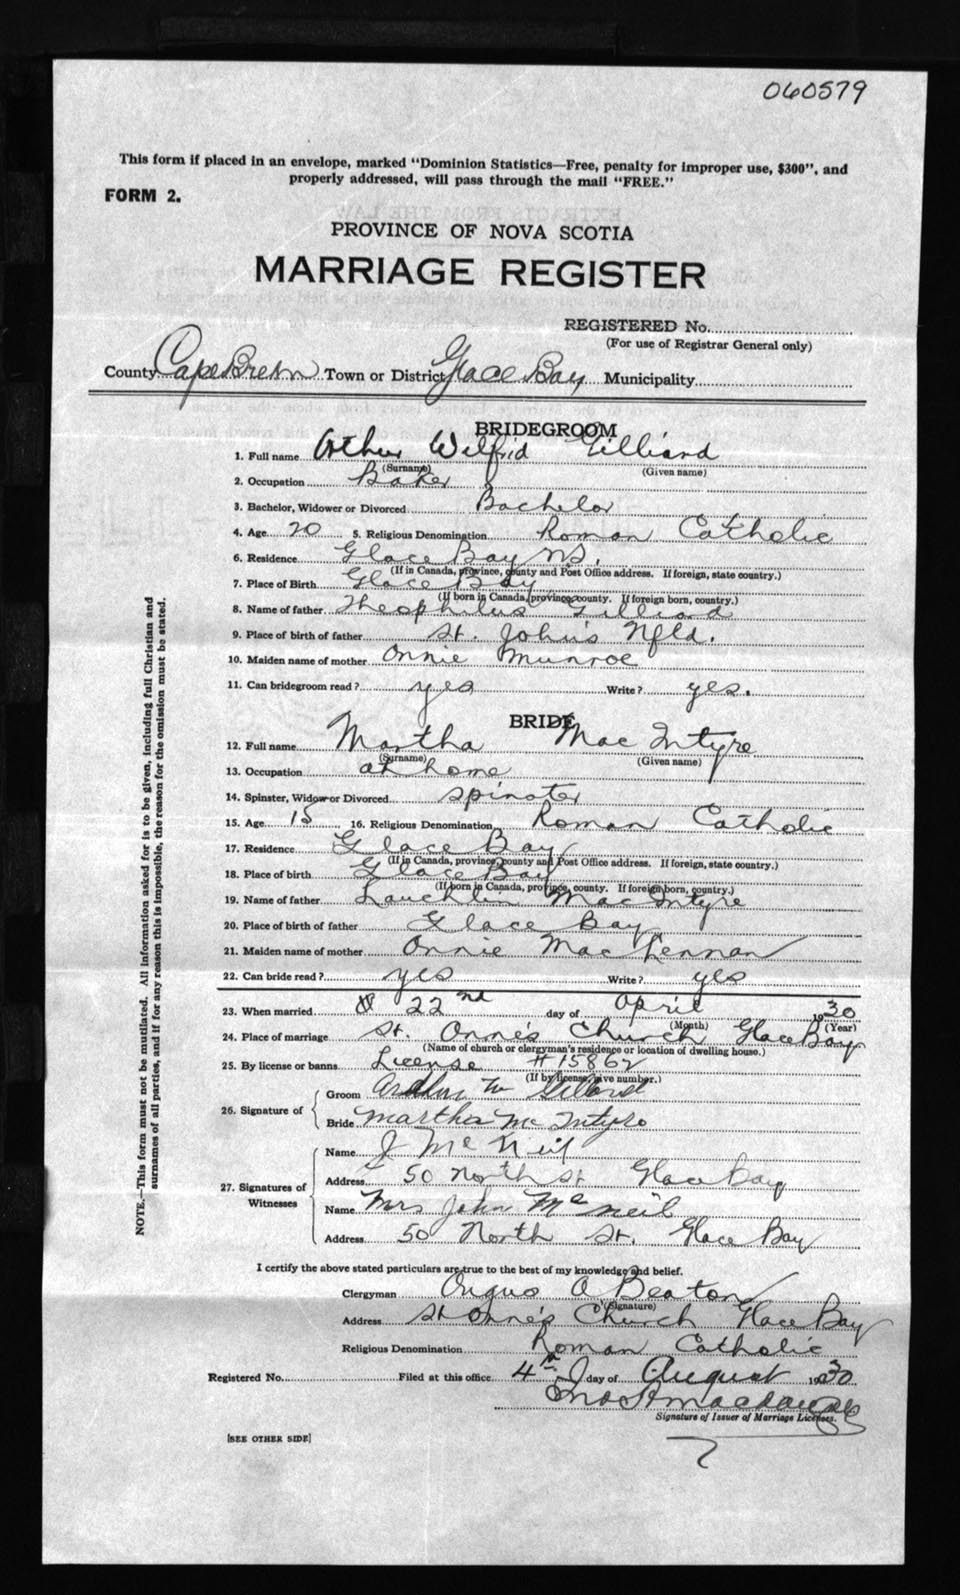 060579
This form if placed in an envelope, marked "Dominion Statistics—Free, penalty for improper use, $300", and
properly addressed, will pass through the mail "FREE."
FORM 2.
PROVINCE OF NOVA SCOTIA
MARRIAGE REGISTER
REGISTERED No.
(For use of Registrar General only)
County Cape Breton Town or District Glace Bay Municipality
BRIDEGROOM
1. Full name Arthur Wilfrid Gilliard
(Surname) (Given name)
2. Occupation Baker
3. Bachelor, Widower or Divorced Bachelor
4. Age 20 5. Religious Denomination Roman Catholic
6. Residence Glace Bay N.S.
(If in Canada, province, county and Post Office address. If foreign, state country.)
7. Place of Birth Glace Bay
(If born in Canada, province, county. If foreign born, country.)
8. Name of father Theophilus Gilliard
9. Place of birth of father St. John's Nfld.
10. Maiden name of mother Annie Munroe
11. Can bridegroom read? yes Write? yes.
BRIDE
12. Full name Martha Mac Intyre
(Surname) (Given name)
13. Occupation at home
14. Spinster, Widow or Divorced spinster
15. Age 15 16. Religious Denomination Roman Catholic
17. Residence Glace Bay
(If in Canada, province, county and Post Office address. If foreign, state country.)
18. Place of birth Glace Bay
(If born in Canada, province, county. If foreign born, country.)
19. Name of father Lauchlin MacIntyre
20. Place of birth of father Glace Bay
21. Maiden name of mother Annie MacLennan
22. Can bride read? yes Write? yes
23. When married 22nd day of April 1930
(Month) (Year)
24. Place of marriage St. Anne's Church Glace Bay
(Name of church or clergyman's residence or location of dwelling house.)
25. By license or banns License # 15862
(If by license, give number.)
26. Signature of
Groom Arthur W Gillard
Bride Martha McIntyre
27. Signatures of Witnesses
Name J McNeil
Address 50 North St Glace Bay
Name Mrs John McNeil
Address 50 North St. Glace Bay
I certify the above stated particulars are true to the best of my knowledge and belief.
Clergyman Angus A Beaton
(Signature)
Address St Anne's Church Glace Bay
Religious Denomination Roman Catholic
Registered No. Filed at this office 4th day of August 1930
Signature of Issuer of Marriage Licenses.
[SEE OTHER SIDE]
NOTE.—This form must not be mutilated. All information asked for is to be given, including full Christian and
surnames of all parties, and if for any reason this is impossible, the reason for the omission must be stated.